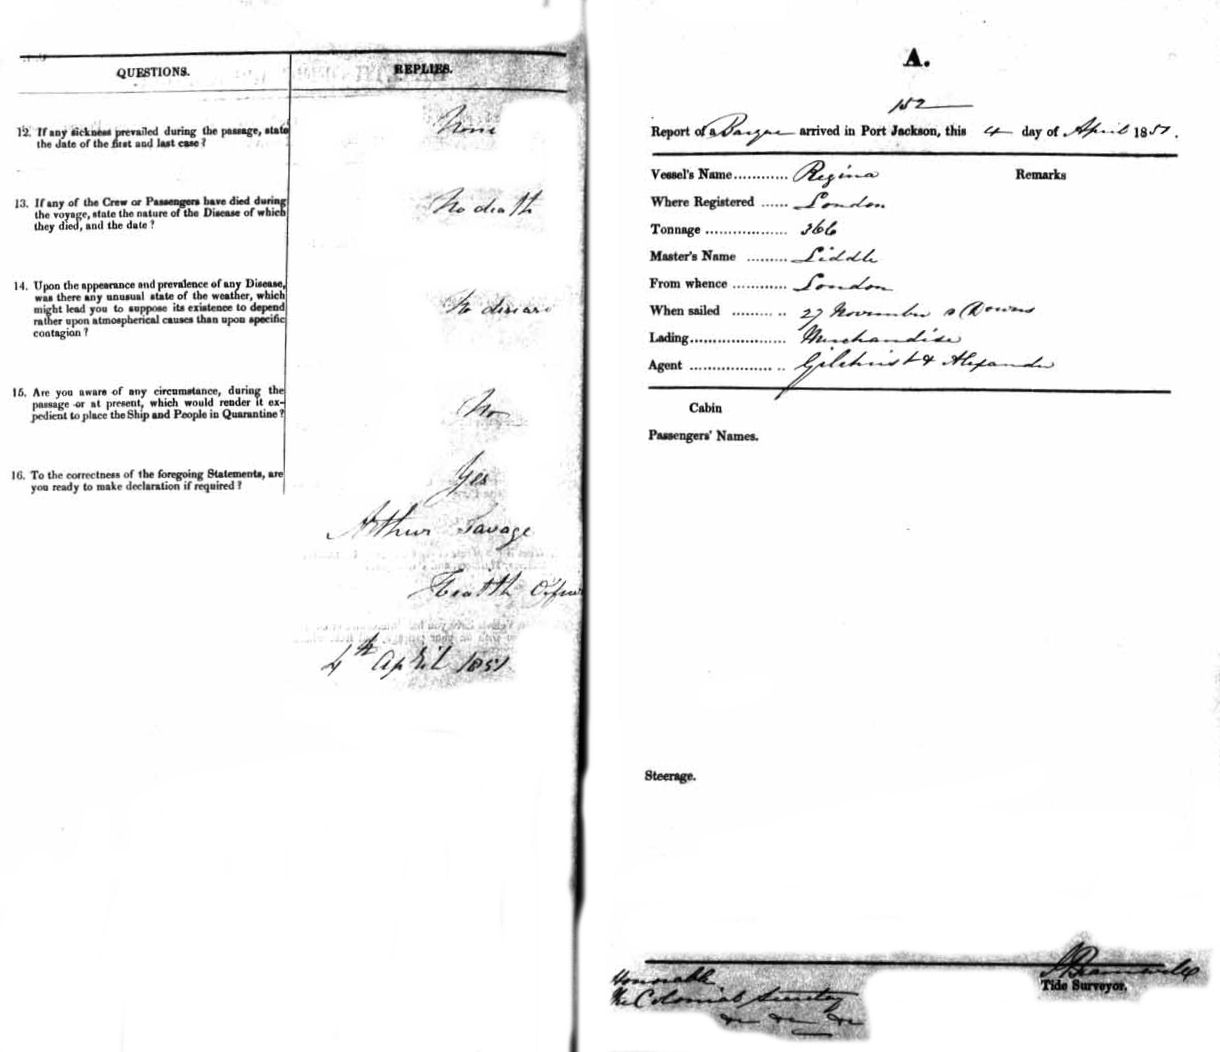 QUESTIONS.
REPLIES.
12. If any sickness prevailed during the passage, state
the date of the first and last case ?
None
13. If any of the Crew or Passengers have died during
the voyage, state the nature of the Disease of which
they died, and the date ?
No death
14. Upon the appearance and prevalence of any Disease,
was there any unusual state of the weather, which
might lead you to suppose its existence to depend
rather upon atmospherical causes than upon specific
contagion ?
No disease
15. Are you aware of any circumstance, during the
passage or at present, which would render it ex-
pedient to place the Ship and People in Quarantine ?
No
16. To the correctness of the foregoing Statements, are
you ready to make declaration if required ?
Yes
Arthur Savage
Health Officer
4th April 1851
A.
152
Report of a Barque arrived in Port Jackson, this 4 day of April 1851.
Vessel's Name............ Regina
Remarks
Where Registered ...... London
Tonnage .................. 366
Master's Name ......... Liddle
From whence ............ London
When sailed .......... .. 27 November Downs
Lading...................... Merchandise
Agent .................. .. Gilchrist & Alexander
Cabin
Passengers' Names.
Steerage.
Honorable
The Colonial Secretary
&c &c &c
Tide Surveyor.